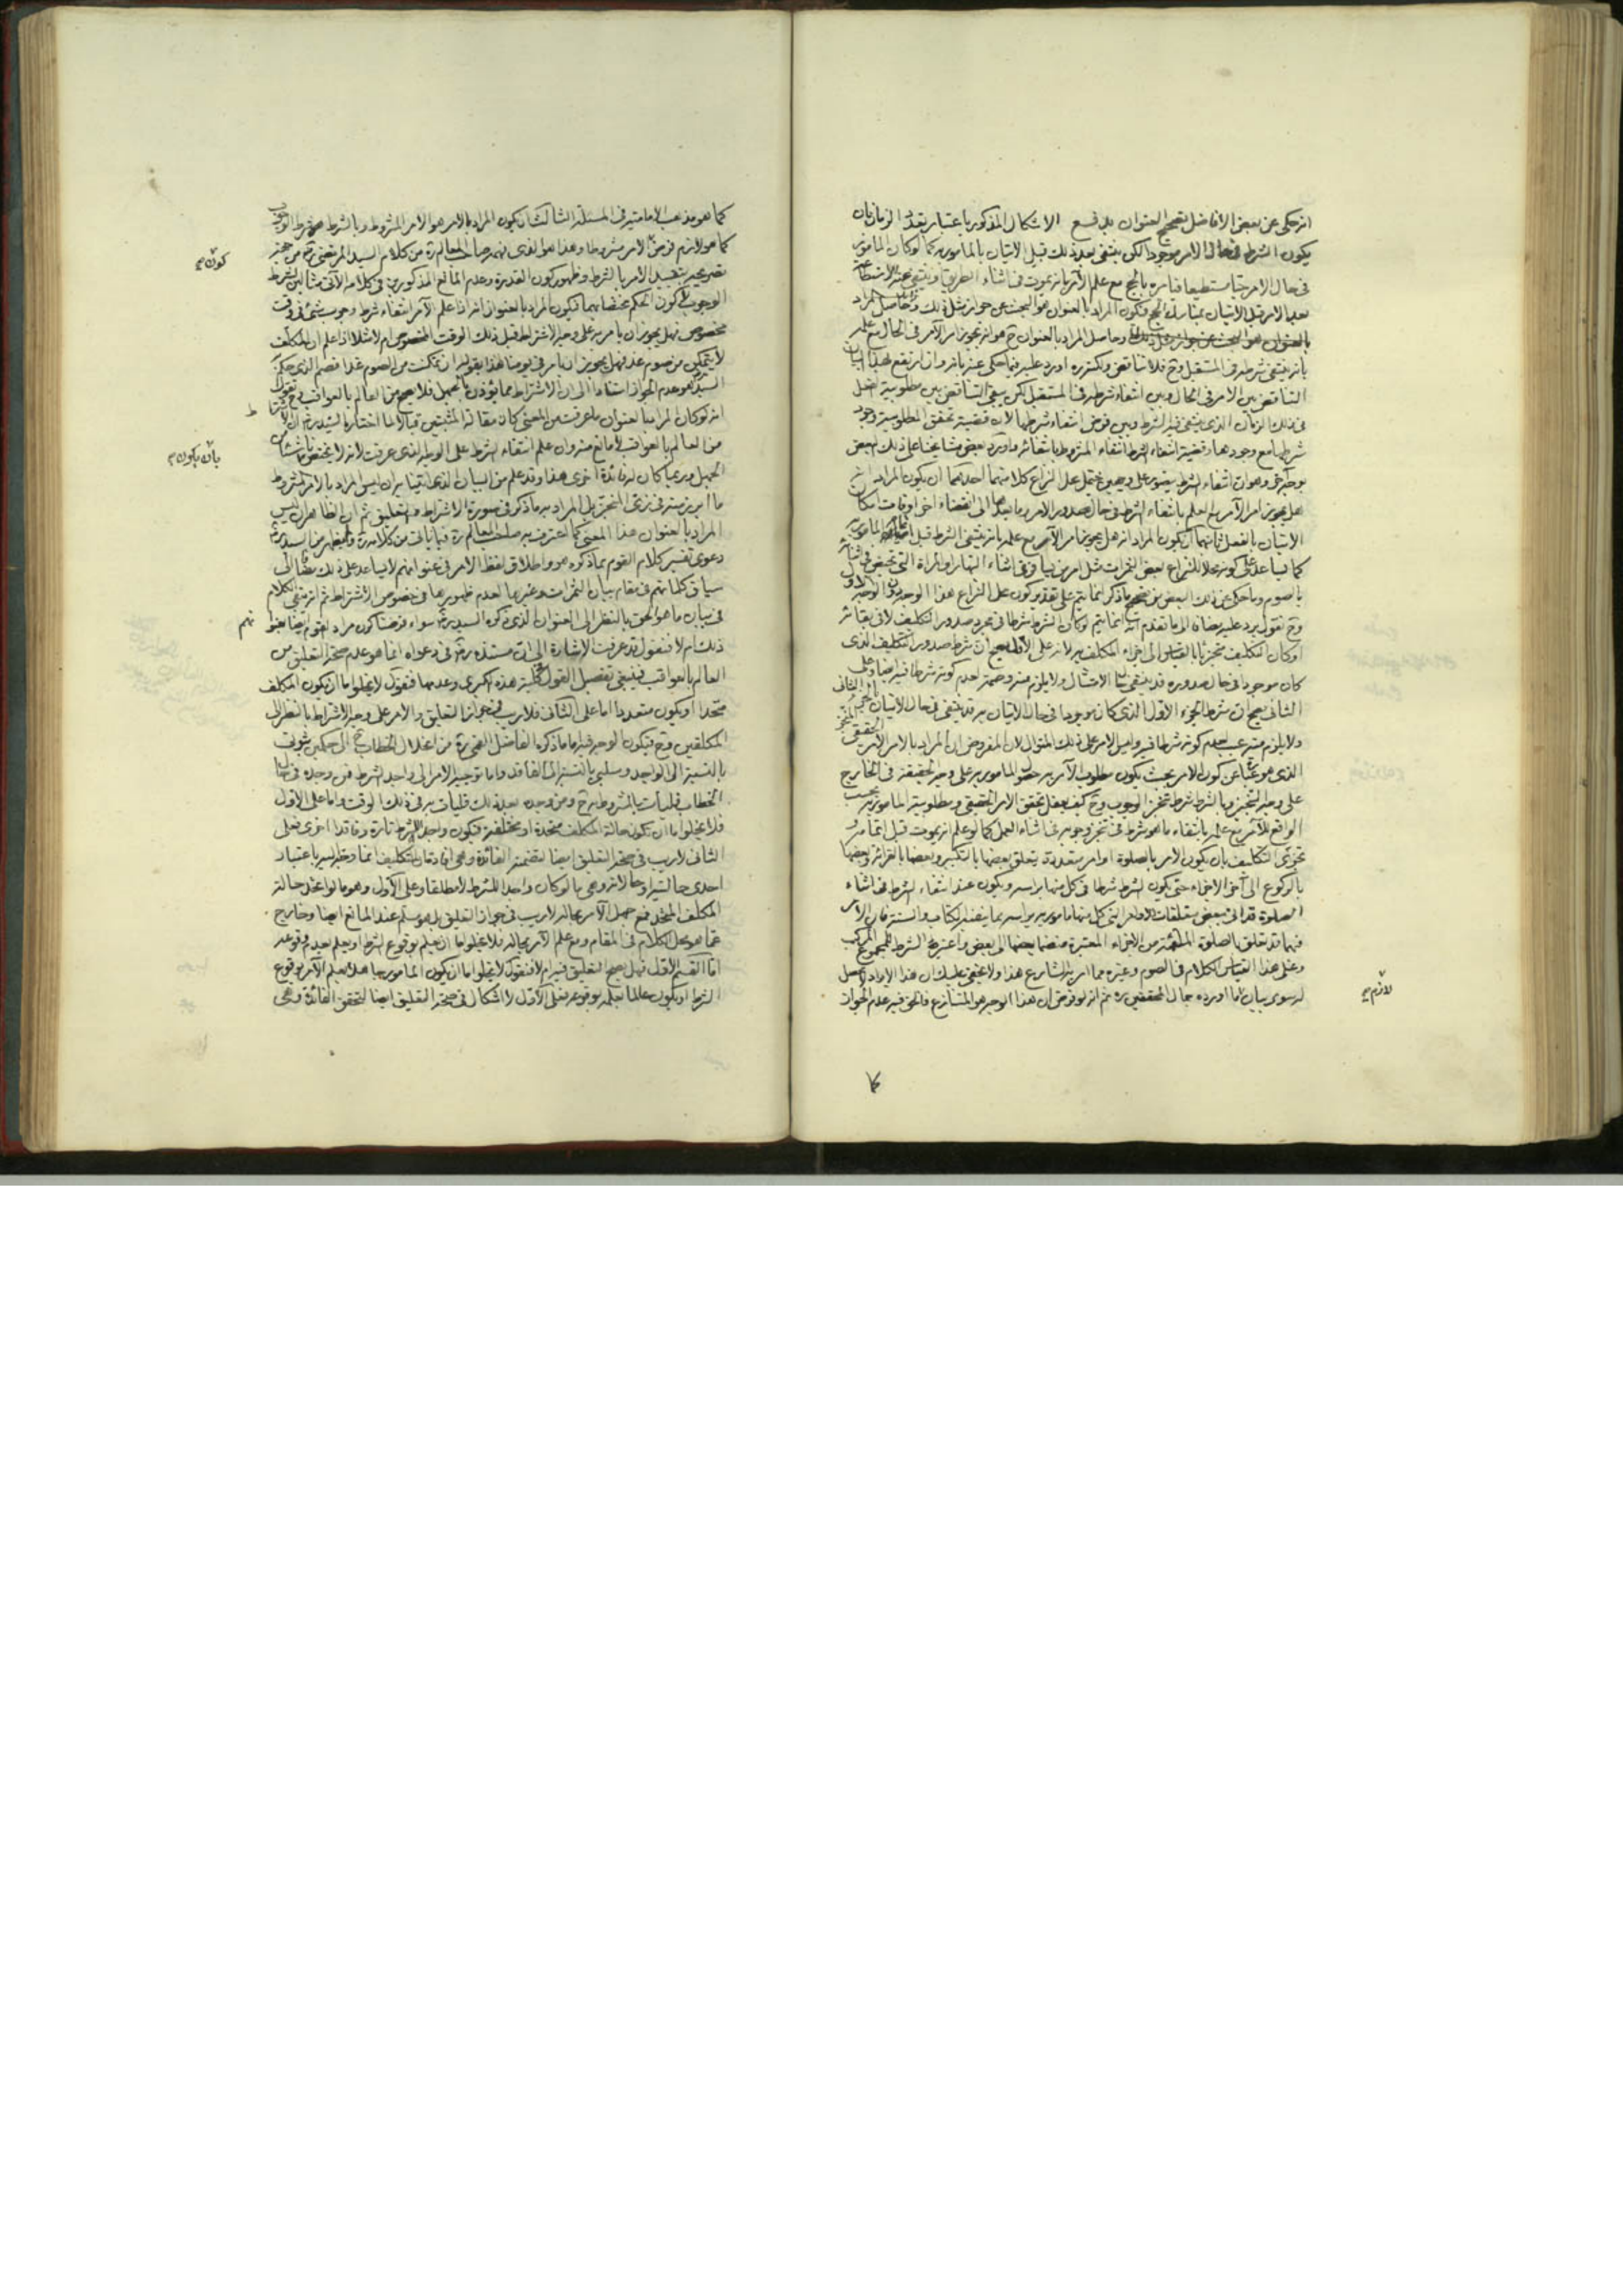 انه حكى عن بعض الافاضل تصحيح العنوان بدفع الاشكال المذكور باعتبار تعدد الزمان بان
يكون الشرط فى حال الامر موجودا لكن ينتفى بعد ذلك قبل الاتيان بالمامور به كما لو كان المامور
فى حال الامر حيا مستطيعا فامره بالحج مع علم الآمر بانه يموت فى اثناء الطريق او ينتفى عنه الاستطاعة
بعد الامر قبل الاتيان بمناسك الحج فيكون المراد بالعنوان هو البحث عن جواز مثل ذلك وحاصل المراد
بالعنوان هو البحث عن جواز مثل ذلك وحاصل المراد بالعنوان ح هو انه يجوز امر الآمر فى الحال مع علمه
بانه ينتفى شرطه فى المستقبل وح فلا تناقض ولكنه ره اورد عليه فيما حكى عنه بانه وان ارتفع بهذا البيان
التناقض بين الامر فى الحال وبين انتفاء شرطه فى المستقبل لكن يبقى التناقض بين مطلوبية الفعل
فى ذلك الزمان الذى ينتفى فيه الشرط وبين فرض انتفاء شرطها لان قضية تحقق المطلوبية وجود
شرطها مع وجودها وقضية انتفاء الشرط انتفاء المشروط بانتفائه واورد بعض مشايخنا على ذلك البعض
بوجه آخر وهو ان انتفاء الشرط يتصور على وجهين يحتمل محل النزاع كلا منهما احدهما ان يكون المراد انه
هل يجوز امر الآمر مع العلم بانتفاء الشرط فى حال صدور الامر وما بعدها الى انقضاء آخر اوقات امكان
الاتيان بالفعل ثانيهما ان يكون المراد انه هل يجوز امر الآمر مع علمه بانه ينتفى الشرط قبل المامور به
كما يساعد على كونه محلا للنزاع بعض الثمرات مثل امر من يسافر فى اثناء النهار والمراة التى تحيض فى اثنائه
بالصوم وما حكى عن ذلك البعض من تصحيح ما ذكر انما يتم على تقدير كون محل النزاع هذا الوجه دون الوجه الاول
وح نقول يرد عليه مضافا الى ما تقدم انه انما يتم لو كان الشرط شرطا فى مجرد صدور التكليف لا فى بقائه
او كان التكليف متجزيا بالقياس الى اجزاء المكلف به لانه على الاول يصح ان شرط صدور التكليف الذى
كان موجودا فى حال صدوره قد ينتفى حال الامتثال ولا يلزم منه وصمة لعدم كونه شرطا فيه ايضا وعلى
الثانى يصح ان شرط الجزء الاول الذى كان موجودا فى حال الاتيان به قد ينتفى فى حال الاتيان بالجزء الثانى
ولا يلزم منه عيب لعدم كونه شرطا فيه وليس الامر على ذلك المنوال لان المفروض ان المراد بالامر الامر الحقيقى المنجز
الذى هو عبارة عن كون الامر بحيث يكون مطلوب الآمر به حصول المامور به على وجه الحقيقة فى الخارج
على وجه التنجيز وبالشرط شرط تنجز الوجوب وح كيف يعقل تحقق الامر الحقيقى ومطلوبية المامور به بحسب
الواقع للآمر مع علمه بانتفاء ما هو شرط فى تنجز وجوبه فى اثناء العمل كما لو علم انه يموت قبل اتمامه و
تجزى التكليف بان يكون الامر بالصلوة اوامر متعددة يتعلق بعضها بالتكبير وبعضها بالقرائة وبعضها
بالركوع الى آخر الاجزاء حتى يكون الشرط شرطا فى كل منها براسه ويكون عند انتفاء الشرط فى اثناء
الصلوة قد اتى ببعض متعلقات الاوامر التى كل منها مامور به براسه مما ينفيه الكتاب والسنة فان الامر
فيهما قد تعلق بالصلوة الملتئمة من الاجزاء المعتبرة منضما بعضها الى بعض واعتبر الشرط للمجموع المركب
وعلى هذا القياس الكلام فى الصوم وغيره مما امر به الشارع هذا ولا يخفى عليك ان هذا الايراد لا محصل
له سوى بيان لما اورده جمال المحققين ره ثم انه لو فرض ان هذا الوجه هو المتنازع فالحق فيه عدم الجواز
لازم صح
كما
كما هو مذهب الامامية فى المسئلة الثالث ان يكون المراد بالامر هو الامر المشروط وبالشرط هو شرط الوجوب
كما هو لازم فرض الامر مشروطا وهذا هو الذى فهمه صاحب المعالم ره من كلام السيد المرتضى ره من جهة
كون صح
تصريحه بتقييد الامر بالشرط وظهور كون القدرة وعدم المانع المذكورين فى كلامه الآتى مثالين لشرط
الوجوب بل كون الحكم مختصا بهما فيكون المراد بالعنوان انه اذا علم الآمر انتفاء شرط وجوب شئ فى وقت
مخصوص فهل يجوز ان يامر به على وجه الاشتراط قبل ذلك الوقت المخصوص ام لا مثلا اذا علم ان المكلف
لا يتمكن من صوم غد فهل يجوز ان يامر فى يومنا هذا بقوله ان تمكنت من الصوم غدا فصم الذى حكى
السيد هو عدم الجواز استنادا الى ان الاشتراط مما يؤذن بالجهل فلا يصح من العالم بالعواقب وح نقول
انه لو كان المراد بالعنوان ما عرفت من المعنى كان مقالة المثبتين قبالا لما اختاره السيد ره ان الاشتراط
من العالم بالعواقب لا مانع منه وان علم انتفاء الشرط على الوجه الذى عرفت لانه لا يختص
بان يكون صح
الجهل وربما كان له فائدة اخرى هذا وقد علم من البيان الذى اتينا به ان ليس المراد بالامر المشروط
ما ابرز منه فى زى التنجيز بل المراد به ما ذكر فى صورة الاشتراط والتعليق ثم ان الظاهر ان ليس
المراد بالعنوان هذا المعنى كما اعترف به صاحب المعالم ره فيما ياتى من كلامه ره والظاهر من السيد ره
دعوى تفسير كلام القوم بما ذكره هو واطلاق لفظ الامر فى عنوانهم لا يساعد على ذلك مضافا الى
سياق كلماتهم فى مقام بيان الثمرات وغيرها لعدم ظهورها فى خصوص الاشتراط ثم انه بقى الكلام
فى بيان ما هو الحق بالنظر الى العنوان الذى ذكره السيد ره سواء فرضنا كون مراد القوم ايضا هو
ذلك ام لا فنقول قد عرفت الاشارة الى ان مستنده ره فى دعواه انما هو عدم صحة التعليق من
العالم بالعواقب فينبغى تفصيل القول فى كلية هذه الكبرى وعدمها فنقول لا يخلوا ما ان يكون المكلف
متحدا او يكون متعددا اما على الثانى فلا ريب فى جواز التعليق والامر على وجه الاشتراط بالنظر الى
المكلفين وح فيكون الوجه فيه اما ما ذكره الفاضل القمى ره من انحلال الخطاب ح الى حكمين ثبوتى
بالنسبة الى الواجد وسلبى بالنسبة الى الفاقد واما توجيه الامر الى واجد الشرط فمن وجده فى حال
الخطاب فليأت بالمشروط ح ومن وجده بعد ذلك فليات به فى ذلك الوقت واما على الاول
فلا يخلوا ما ان تكون حالة المكلف متحدة او مختلفة فيكون واجدا للشرط تارة وفاقدا اخرى فعلى
الثانى لا ريب فى صحة التعليق ايضا لتضمنه الفائدة وهى افادة ان التكليف انما توجه اليه باعتبار
احدى حالتيه او حالاته وهى ما لو كان واجدا للشرط لا مطلقا وعلى الاول وهو ما لو اتحد حالة
المكلف المتحد فمع جهل الآمر بحاله لا ريب فى جواز التعليق بل هو مسلم عند المانع ايضا وخارج
عما هو محل الكلام فى المقام ومع علم الآمر بحاله فلا يخلوا ما ان يعلم بوقوع الشرط او يعلم بعدم وقوعه
اما القسم الاول فهل يصح التعليق فيه ام لا فنقول لا يخلوا ما ان يكون المامور جاهلا بعلم الآمر بوقوع
الشرط او يكون عالما بعلمه بوقوعه فعلى الاول لا اشكال فى صحة التعليق ايضا لتحقق الفائدة وهى